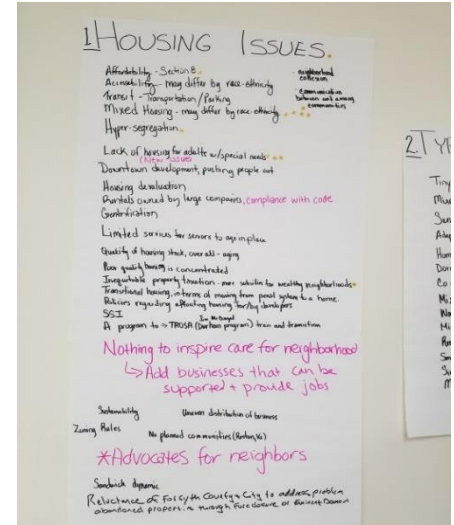 1 HOUSING ISSUES.
Affordability - Section 8
Accessibility - may differ by race-ethnicity
Transit - Transportation/Parking
Mixed Housing - may differ by race-ethnicity
Hyper-segregation
neighborhood cohesion
communication
between and among
communities
Lack of housing for adults w/special needs
(New Issues
Downtown development, pushing people out
Housing devaluation
Rentals owned by large companies, compliance with code
Gentrification
Limited services for seniors to age in place
Quality of housing stock, overall - aging
Poor quality housing is concentrated
Inequitable property taxation - more
for wealthy neighborhoods
Transitional housing, in terms of moving from penal system to a home.
Policies regarding affecting housing for/by developers
SSI
A program to => TROSA (Durham program) train and transition
Nothing to inspire care for neighborhood
↳ Add businesses that can be
supported + provide jobs
Sustainability
Uneven distribution of business
Zoning Rules
No planned communities (Reston, Va)
*Advocates for neighbors
Sandwich dynamic
Reluctance of Forsyth County & City to address problem
abandoned properties through Foreclosure or Eminent Domain
2 TYP
Tiny